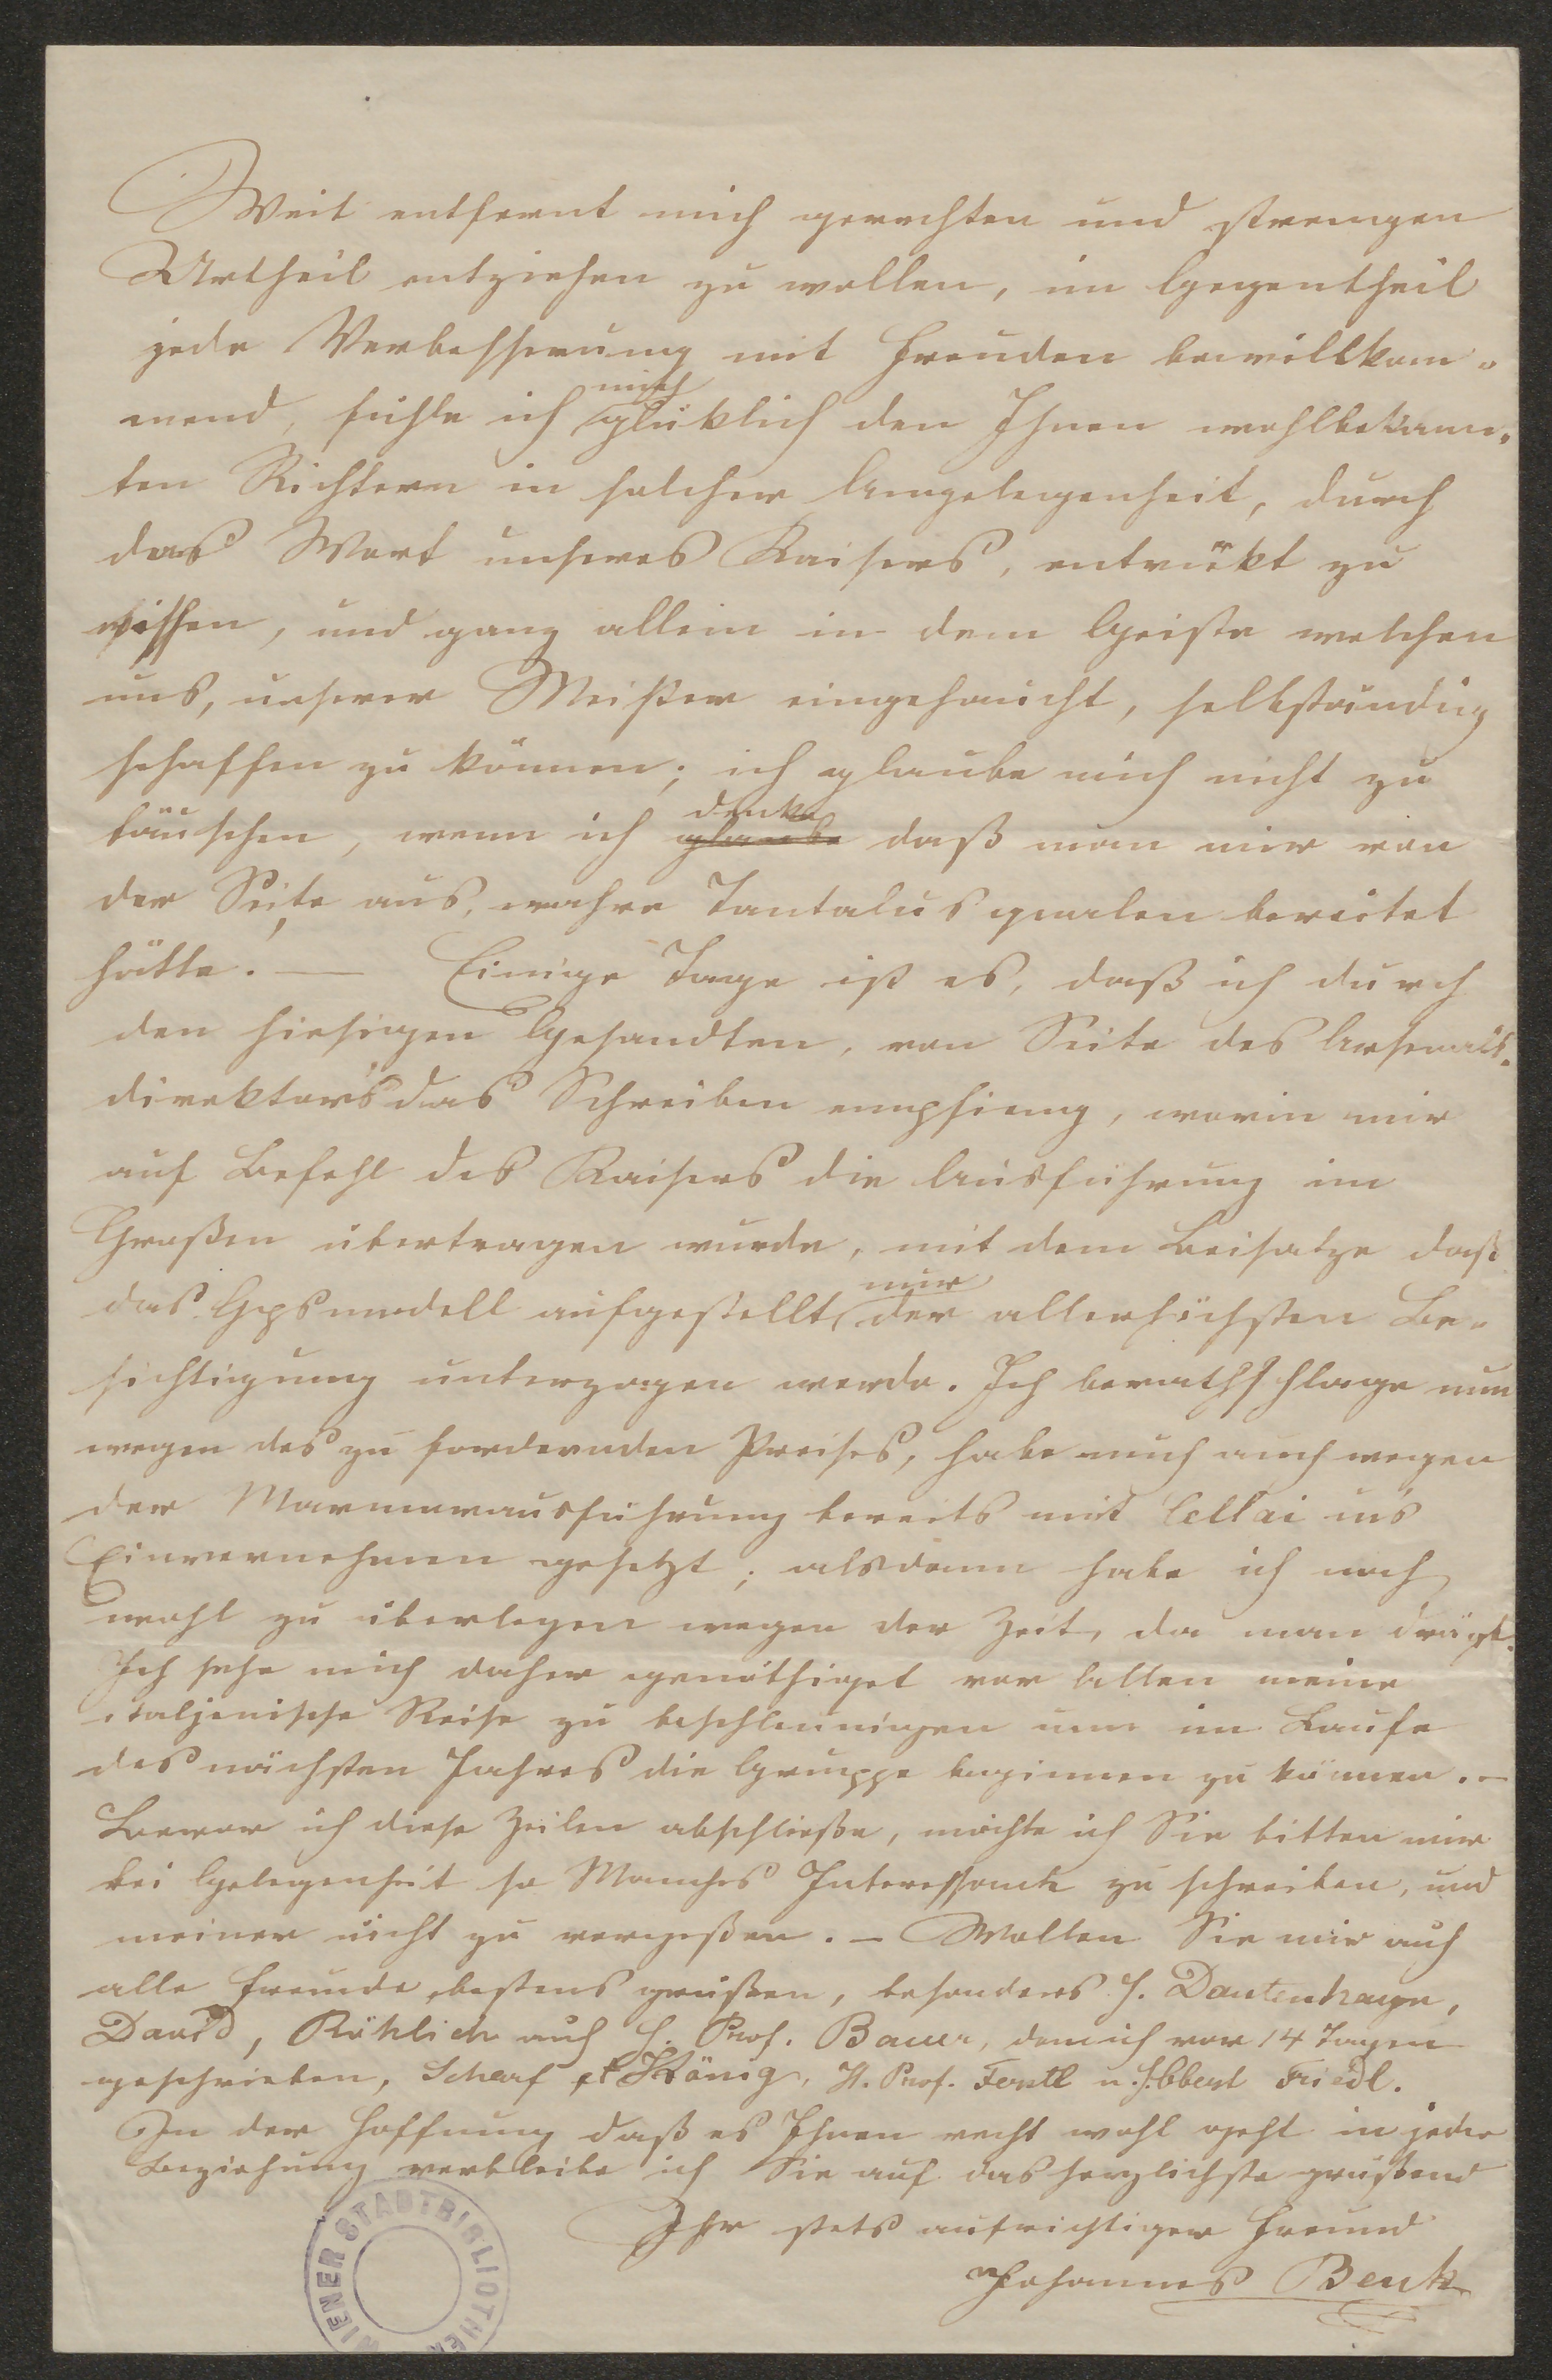 Weit entfernt mich gerechten und strengen
Urtheil entziehen zu wollen, im Gegentheil
jede Verbesserung mit Freuden bewillkom-
mend, fühle ich mich glüklich den Ihnen wohlbekann-
ten Richtern in solcher Angelegenheit, durch
das Wort unseres Kaisers, entrükt zu
wissen, und ganz allein in dem Geiste welchen
uns, unserer Meister eingehaucht, selbständig
schaffen zu können; ich glaube mich nicht zu
täuschen, wenn ich glaube denke daß man mir von
der Seite aus, wahre Tantalusqualen bereitet
hätte! — Einige Tage ist es, daß ich durch
den hiesigen Gesandten, von Seite des Arsenals-
direktors das Schreiben empfieng, worin mir
auf Befehl des Kaisers die Ausführung im
Großen übertragen wurde, mit dem Beisatze daß
das Gpsmodell aufgestellt, nur der allerhöchsten Be-
sichtigung unterzogen werde. Ich berathschlage nun
wegen des zu fordernden Preises, habe mich auch wegen
der Marmorausführung bereits mit Cellai in's
Einvernehmen gesetzt; alsdann habe ich noch
wohl zu überlegen wegen der Zeit, da man drägt.
Ich sehe mich daher genöthiget vor Allen meine
italjenische Reise zu beschleunigen um im Laufe
des nächsten Jahres die Gruppe beginnen zu können. –
Bevor ich diese Zeilen abschließe, möchte ich Sie bitten mir
bei Gelegenheit so Manches Interessante zu schreiben, und
meiner nicht zu vergeßen. – Wollen Sie mir auch
alle Freunde bestens grüßen, besonders H. Dautenhayn,
David, Röhlich auch H. Prof. Bauer, dem ich vor 14 Tagen
geschrieben, Scharf et König, H. Prof. Ferstl u. H. Friedl.
In der Hoffnung daß es Ihnen recht wohl geht in jeder
Beziehung verbleibe ich Sie auf das herzlichste grüßend
Ihr stets aufrichtiger Freund
Johannes Benk
WIENER STADTBIBLIOTHEK